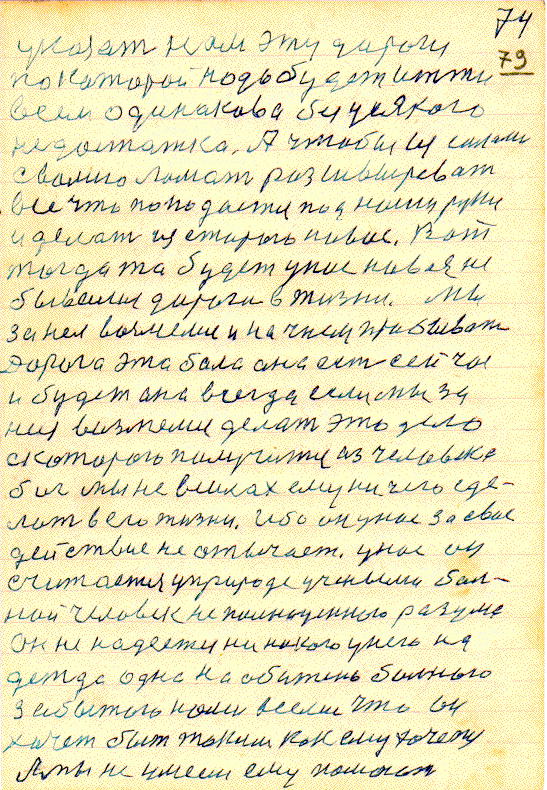 74
79
указат нам эту дарогу
по каторой надо будет итти
всем одинакова без усякого
недостатка. А чтобы
ломат
все что пападается под наши руки
и делат из старого новое. Вот
тогда та будет у нас новая не
бывалая дарога в жизни. Мы
за нея возмемся и начнем прабиват
Дорога эта была она ест сейчас
и будет ана всегда если мы за
нея возмемся делат это дело
с которого получится из человека
бог мы не в силах ему ничего зде-
лат в его жизни. Ибо он у нас за свае
действие не атвечает. у нас он
считается у природе ученыма бал-
ной человек не полноценного разума
Он не надеется ни на кого у него на
дежда одна на обижень больного
забытого нами всеми что он
хочет быт таким как ему хочется
А мы не умеем ему помагат